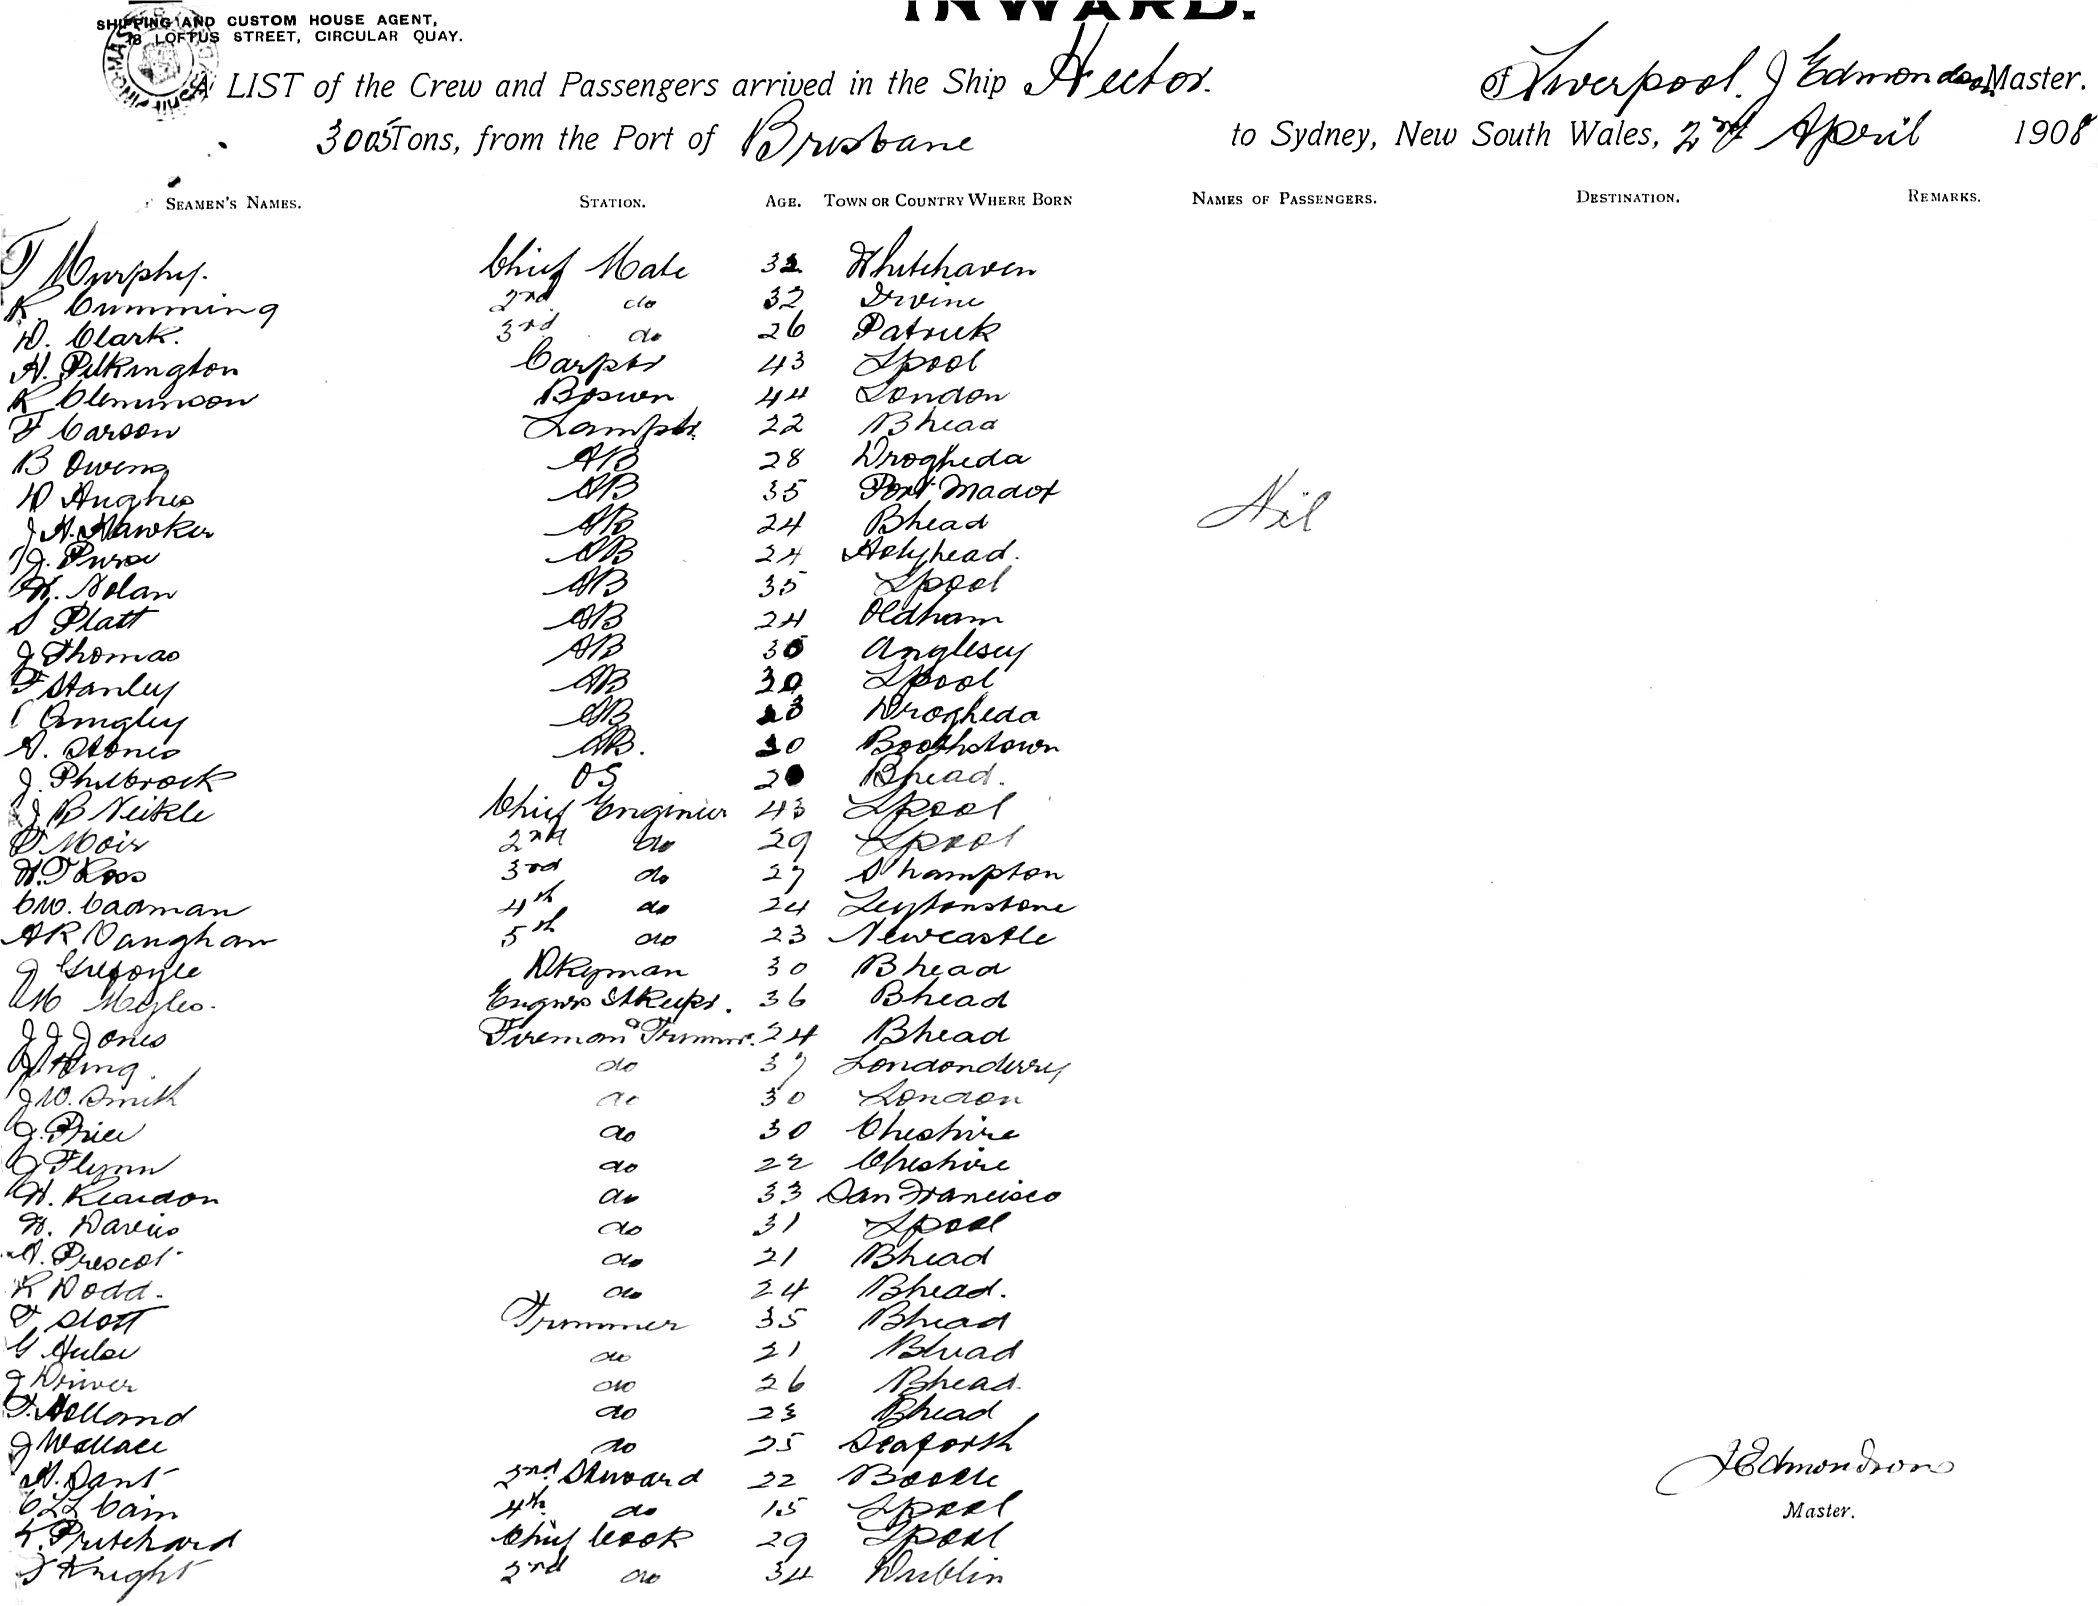 INWARD.
SHIPPING AND CUSTOM HOUSE AGENT,
18 LOFTUS STREET, CIRCULAR QUAY.
A LIST of the Crew and Passengers arrived in the Ship Hector. of Liverpool. J Edmondson Master.
3005 Tons, from the Port of Brisbane to Sydney, New South Wales, 2nd April 1908
SEAMEN'S NAMES. STATION. AGE. TOWN OR COUNTRY WHERE BORN NAMES OF PASSENGERS. DESTINATION. REMARKS.
T Murphy. Chief Mate 32 Whitehaven
R. Cumming 2nd do 32 Irvine
D. Clark. 3rd do 26 Patrick
H. Pilkington Carptr 43 Lpool
R Cleminson Boswn 44 London
F Carson Lamptr 22 Bhead
B Owens AB 28 Drogheda
D Hughes AB 35 Port Madot
J H. Hawker AB 24 Bhead
Nil
J. Purse AB 24 Holyhead.
W. Nolan AB 35 Lpool
S Platt AB 24 Oldham
J Thomas AB 36 Anglesey
F Stanley AB 30 Lpool
Quigley AB 23 Drogheda
A. Stones AB. 30 Boothstown
J. Philbrock OS 20 Bhead.
J B Neikle Chief Engineer 43 Lpool
Moir 2nd do 29 Lpool
W. T Ross 3rd do 27 Shampton
C W. Cadman 4th do 24 Leytonstone
AR Vaughan 5th do 23 Newcastle
J Dkyman 30 Bhead
M Myles. Engnrs Stkeepr. 36 Bhead
J J Jones Fireman & Trimmr. 24 Bhead
J King. do 37 Londonderry
J W. Smith do 30 London
J. Price do 30 Cheshire
J Flynn do 22 Cheshire
W. Reardon do 33 San Francisco
W. Davies do 31 Lpool
A. Prescot do 21 Bhead
R Dodd. do 24 Bhead.
F Slott Trimmer 35 Bhead
G Hulse do 21 Bhead
J Driver do 26 Bhead.
T. Holland do 23 Bhead
J Wallace do 25 Seaforth
H. Sant 3rd Steward 22 Bootle
C L L Cain 4th do 15 Lpool
Pritchard Chief Cook 29 Lpool
J Knight 2nd do 34 Dublin
J Edmondson
Master.